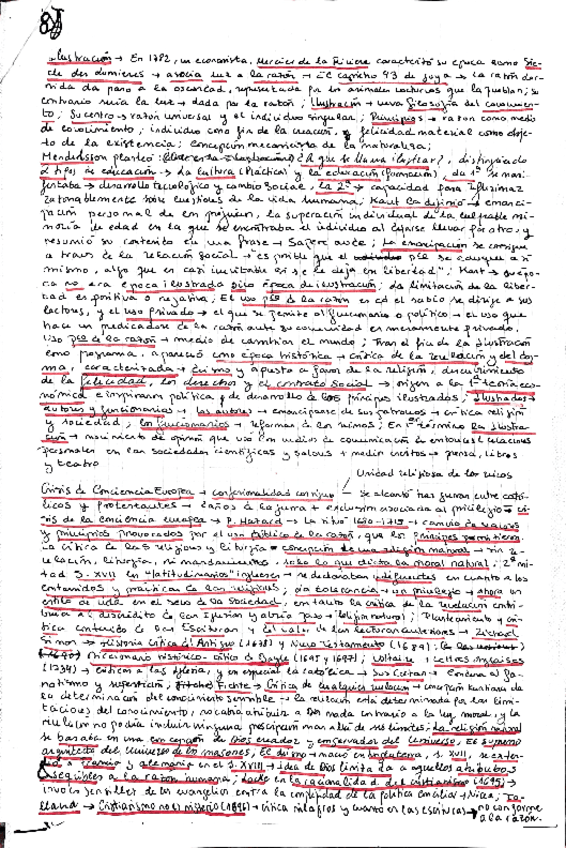 Ilustración → En 1782, un economista, Mercier de la Riviere caracterizó su época como Si-
glo des lumieres → asocia luz a la razón → El capricho 43 de Goya → La razón dor-
mida da paso a la oscuridad, representada por los animales nocturnos que la pueblan; su
contrario sería la luz → dada por la razón; Ilustración → nueva filosofía del conocimien-
to; Su centro → razón universal y el individuo singular; Principios → razón como medio
de conocimiento; individuo como fin de la creación y felicidad material como obje-
to de la existencia; concepción mecanicista de la naturaleza;
Mendelsson planteó ¿A qué se llama ilustrar?, distinguiendo
2 tipos de educación → La cultura (Práctica) y la educación (formación), la 1ª se mani-
festaba → desarrollo tecnológico y cambio social. La 2ª → capacidad para reflexionar
razonablemente sobre cuestiones de la vida humana; Kant la definió → emanci-
pación personal de un prejuicio, la superación individual de la culpable mi-
noría de edad en la que se encontraba el individuo al dejarse llevar por otro, y
resumió su contenido en una frase → Sapere aude; La emancipación se consigue
a traves de la relación social → es posible que el pco se eduque a si
mismo, algo que es casi inevitable si se le deja en libertad"; Kant → su épo-
ca no era época ilustrada sino época de ilustración; La limitación de la liber-
tad es positiva o negativa; El uso pco de la razón es cd el sabio se dirige a sus
lectores, y el uso privado → el que se permite al funcionario o político → el uso que
hace un predicador de la razón ante su comunidad es meramente privado.
Uso pco de la razón → medio de cambiar el mundo; Tras el fin de la Ilustración
como programa, apareció como época histórica → crítica de la revelación y del dog-
ma, caracterizada → deísmo y apuesta a favor de la religión, descubrimiento
de la felicidad, los derechos y el contrato social → origen a la 1ª teoría eco-
nómica e inspiraron política y de desarrollo de los principios ilustrados; Ilustrados →
autores y funcionarios → los autores → emanciparse de sus patronos → crítica religión
y sociedad; los funcionarios → reformas de los mismos; En 1er término la ilustra-
ción → movimiento de opinión que usó los medios de comunicación de entonces (relaciones
personales en las sociedades científicas y salons + medios escritos → prensa, libros
y teatro
Unidad religiosa de los reinos
Crisis de Conciencia Europea → confesionalidad continuo — se alcanzó tras guerras entre cató-
licos y protestantes → daños de la guerra + exclusión asociada al privilegio → cri-
sis de la conciencia europea → P. Hazard → la situó 1680-1715 → cambio de valores
y principios provocados por el uso público de la razón, que los principes permitieron.
La crítica de las religiones y liturgia → concepción de una religión natural → sin re-
velación, liturgia, ni mandamientos, solo lo que dicta la moral natural; 2ª mi-
tad S. XVII en "latitudinarios" ingleses → se declaraban indiferentes en cuanto a los
contenidos y prácticas de las religiones; sin tolerancia → un privilegio → ahora un
estilo de vida en el seno de la Sociedad, en tanto la crítica de la revelación conti-
nua al descrédito de las Iglesias y abría paso → (religión natural); Planteamiento y crí-
tica contenido de las Escrituras y el valor de las lecturas anteriores → Richard
Simon → Historia Crítica del Antiguo (1678) y Nuevo Testamento (1689);
Diccionario histórico-crítico de Bayle (1695 y 1697); Voltaire, Lettres Anglaises
(1734) → críticas a las Iglesia, y en especial la católica → Sus Cartas → Condena al fa-
natismo y superstición, Fichte → Crítica de cualquier revelación → concepción kantiana de
la determinación del conocimiento sensible → la revelación está determinada por las limi-
taciones del conocimiento, no cabía atribuir a Dios nada contrario a la ley moral, y la
religión no podía incluir ninguna prescripción mas allá de sus límites; La religión natural
se basaba en una concepción de Dios creador y conservador del universo, El supremo
arquitecto del universo de los masones; El deísmo → nació en Inglaterra, s. XVII, se exten-
dió a Francia y Alemania en el S. XVIII → idea de Dios limitada a aquellos atributos
asequibles a la razón humana; Locke en La racionalidad del cristianismo (1695) →
invoca sencillez de los evangelios contra la complejidad de la política ; To-
lland → Cristianismo no es misterio (1696) → crítica milagros y cuanto en las escrituras → no conforme
a la razón.